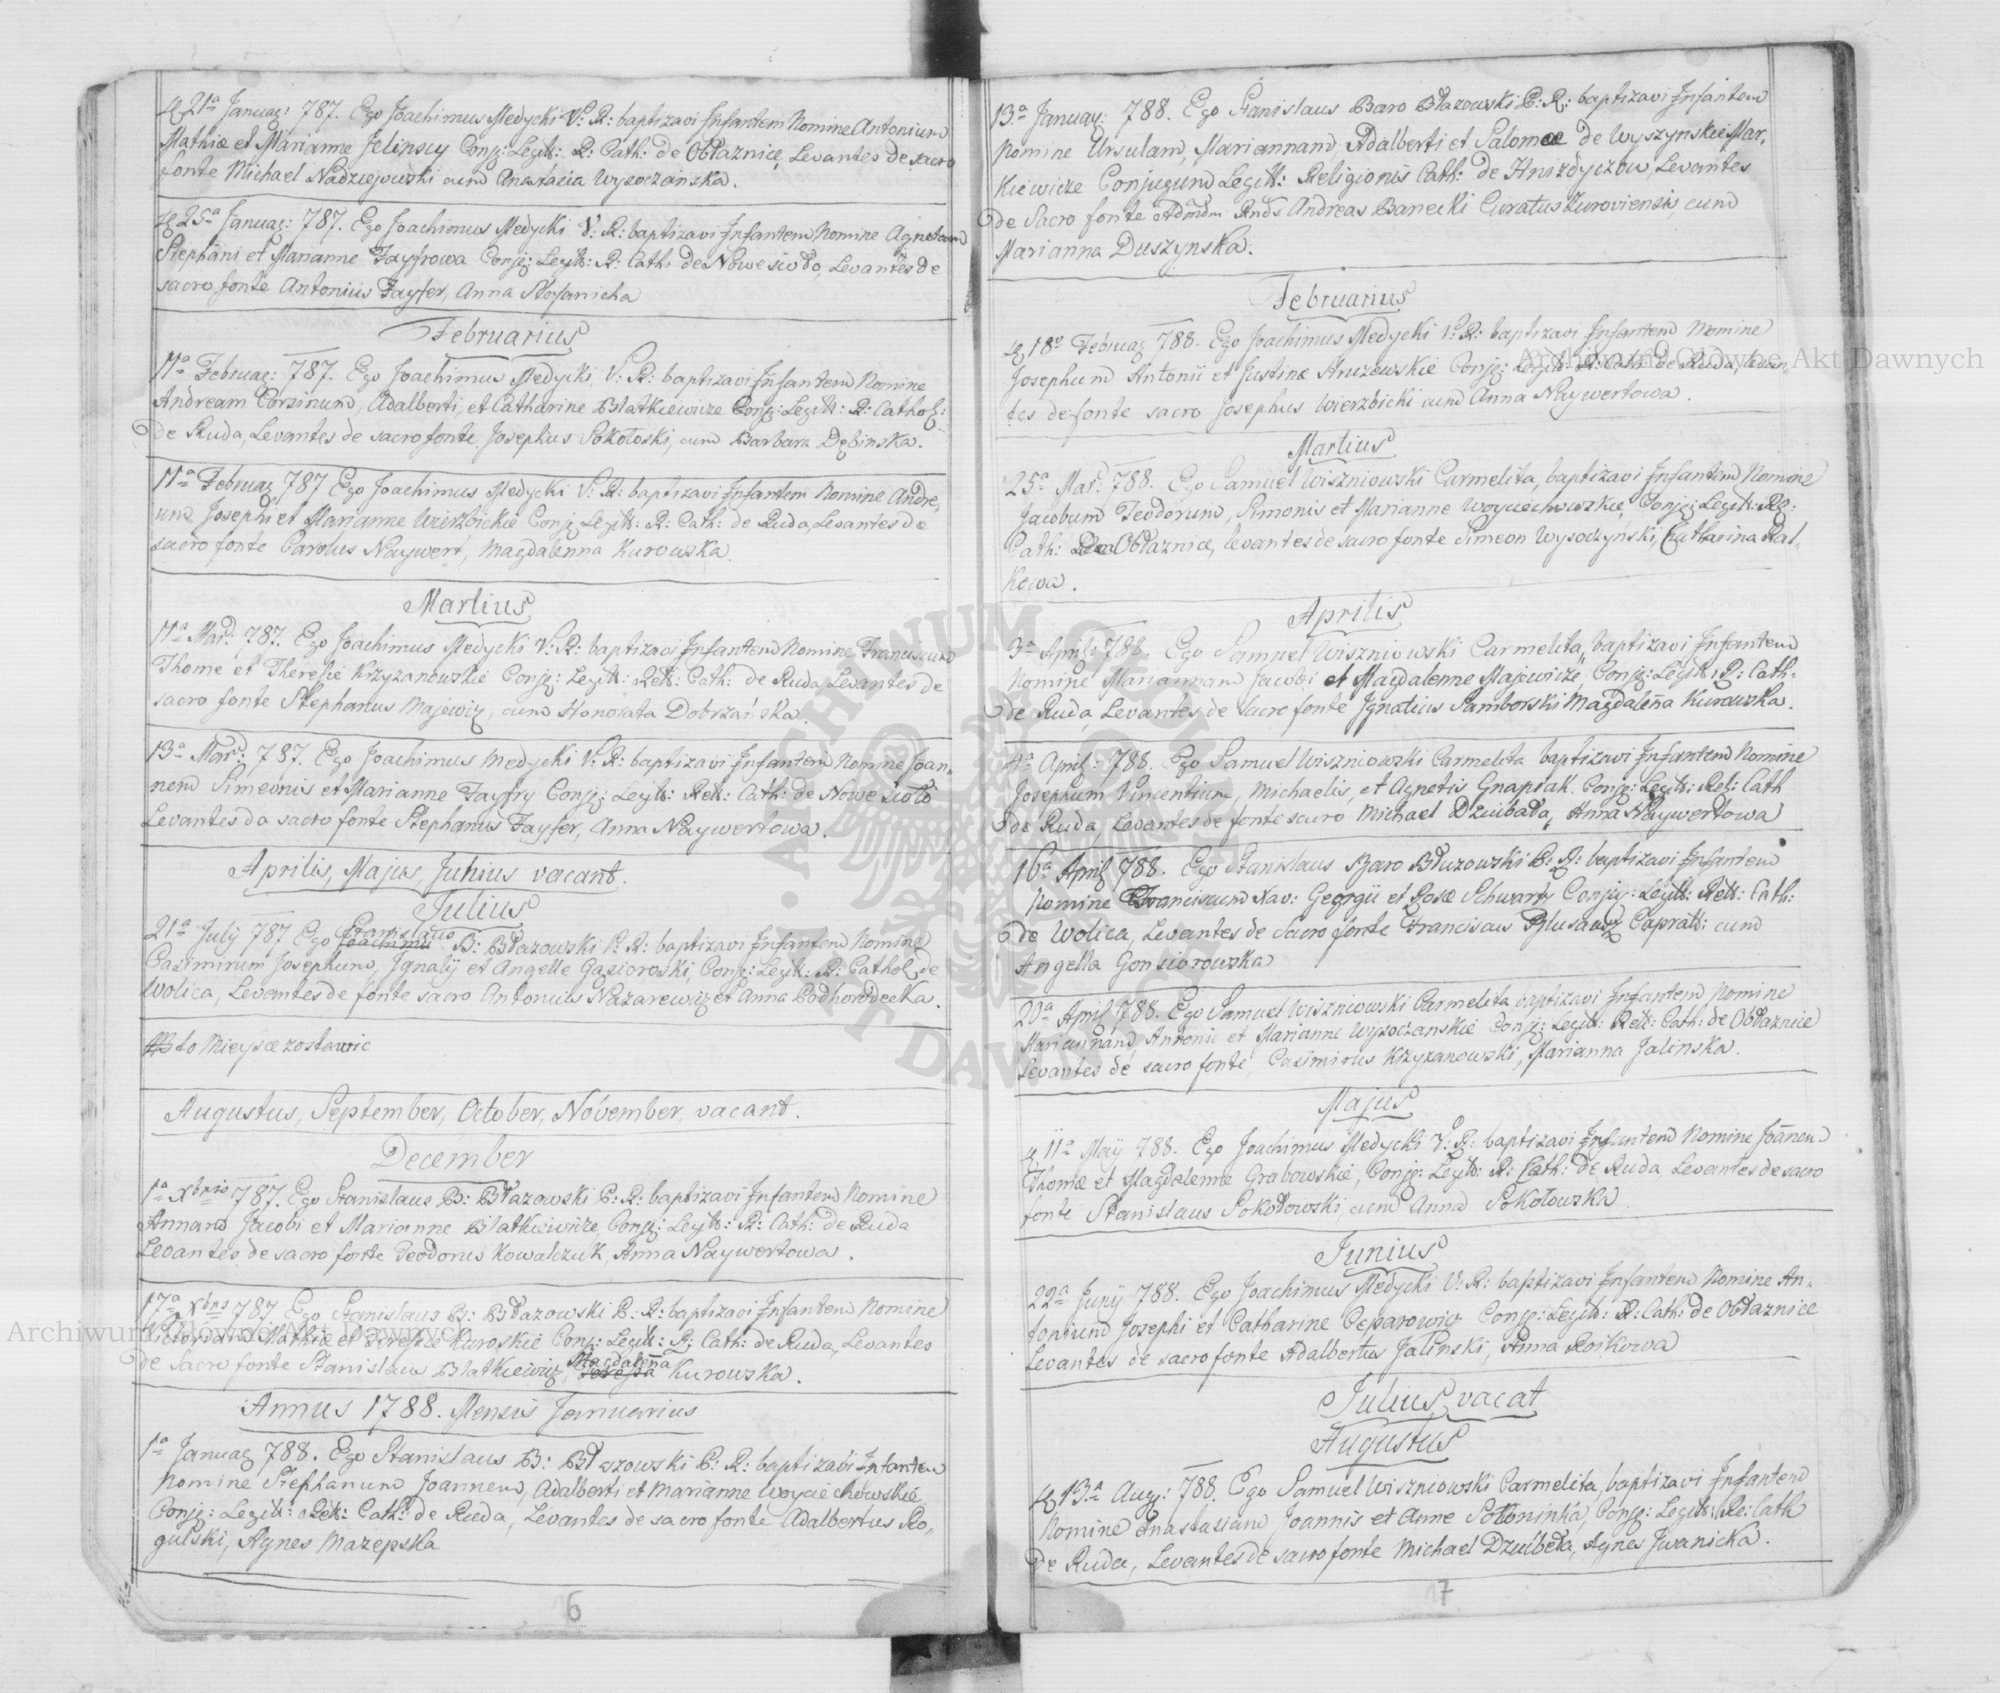 21a Januar: 787. Ego Joachimus Medycki V: R: baptizavi Infantem Nomine Antonium
Mathiæ et Marianne Jelinscy Conjg: Legitt: R: Cath: de Obłaznicę, Levantes de sacro
fonte Michael Nadziejowski cum Anastasia Wysoczańska.
25a Januar: 787. Ego Joachimus Medycki V: R: baptizavi Infantem Nomine Agnetem
Stephani et Marianne Fayfrowa Conjg: Legitt: R: Cath: de Nowe siodo, Levantes de
sacro fonte Antonius Fayfer, Anna Stefanicha
Februarius
11a Februar: 787. Ego Joachimus Medycki V: R: baptizavi Infantem Nomine
Andream Corsinum, Adalberti, et Catharine Blatkiewicze Conjg: Legitt: R: Cathol:
de Ruda, Levantes de sacro fonte Josephus Sokołoski, cum Barbara Dębinska.
11a Februar 787 Ego Joachimus Medycki V: R: baptizavi Infantem Nomine Andre,
um Josephi et Marianne Wierzbickie Conjg Legitt: R: Cath: de Ruda, Levantes de
sacro fonte Carolus Naywert, Magdalenna Kurowska.
Martius
11a Mar: 787. Ego Joachimus Medycki V: R: baptizavi Infantem Nomine Franciscum
Thome et Theresie Krzyzanowskie Conjg: Legitt: Rell: Cath: de Ruda, Levantes de
sacro fonte Stephanus Majewicz, cum Honorata Dobrzańska.
13a Mar: 787. Ego Joachimus Medycki V: R: baptizavi Infantem Nomine Joan,
nem Simeonis et Marianne Fayfry Conjg: Legitt: Rell: Cath: de Nowe sioło
Levantes da sacro fonte Stephanus Fayfer, Anna Naywertowa.
Aprilis, Majus, Junius vacant.
Julius
21a July 787 Ego Stanislaus Joachimus B: Błazowski P: R: baptizavi Infantem Nomine
Casimirum Josephum, Ignatij et Angelle Gąsioroski, Conjg: Legitt: R: Cathol de
Wolica, Levantes de fonte sacro Antonius Nazarewicz et Anna Podhorodecka.
to mieysce zostawic
Augustus, September, October, November, vacant.
December
1a Xbris 787. Ego Stanislaus B: Błazowski P: R: baptizavi Infantem Nomine
Annam Jacobi et Marianne Blatkiewicze, Conjg: Legitt: R: Cath: de Ruda
Levantes de sacro fonte Teodorus Kowalczuk, Anna Naywertowa.
17a Xbris 787 Ego Stanislaus B: Błazowski P: R: baptizavi Infantem Nomine
Victoriam Mathie et Kuroskie Conjg: Legitt: R: Cath: de Ruda, Levantes
de Sacro fonte Stanislaus Blatkiewicz, Magdalena Kurowska.
Annus 1788. Mensis Januarius
1a Januar 788. Ego Stanislaus B: Błazowski P: R: baptizavi Infantem
Nomine Stephanum Joannem, Adalberti et Marianne Woyciechowskie
Conjg: Legitt: Rell: Cath: de Ruda, Levantes de sacro fonte Adalbertus Ro,
gulski, Agnes Mazepska
6
13a Januar: 788. Ego Stanislaus Baro Błazowski P: R: baptizavi Infantem
Nomine Ursulam, Mariannam, Adalberti et Salomeæ de Wyszynskie Mar,
kiewicze Conjugum Legitt: Religionis Cath: de Hnizdyczow, Levantes
de Sacro fonte Admdm Rnds Andreas Banecki Curatus Żuroviensis, cum
Marianna Duszynska.
Februarius
18a Februar 788. Ego Joachimus Medycki V: R: baptizavi Infantem Nomine
Josephum Antonii et Justinæ Hruzowskie Conjg: Legitt: R: Cath: de Ruda, Levan,
tes de fonte sacro Josephus Wierzbicki cum Anna Naywertowa.
Martius
25a Mar: 788. Ego Samuel Wiszniowski Carmelita, baptizavi Infantem Nomine
Jacobum Teodorum, Simonis et Marianne Woyciechowskie, Conjg: Legitt: Re:
Cath: de Obłaznice, levantes de sacro fonte Simeon Wysoczyński, Catharina Rat,
kowa.
Aprilis
3a April: 788. Ego Samuel Wiszniowski Carmelita, baptizavi Infantem
Nomine Mariannam Jacobi et Magdalenne Majewicze Conjg: Legitt: R: Cath.
de Ruda, Levantes de sacro fonte Ignatius Samborski Magdalena Kurowska.
4a April: 788. Ego Samuel Wiszniowski Carmelita baptizavi Infantem Nomine
Josephum Vincentium, Michaelis, et Agnetis Gnaptak. Conjg: Legitt: Rel: Cath
de Ruda, Levantes de fonte sacro Michael Dziubała, Anna Naywertowa
16a April 788. Ego Stanislaus Baro Błazowski P: R: baptizavi Infantem
Nomine Franciscum Xav: Georgii et Rosæ Schwartz Conjg: Legitt: Rell: Cath:
de Wolica, Levantes de Sacro fonte Franciscus Caprall: cum
Angella Gonsiorowska
20a April 788. Ego Samuel Wiszniowski Carmelita baptizavi Infantem Nomine
Mariannam, Antonii et Marianne Wysoczanskie Conjg: Legitt: Rell: Cath: de Obłaznice
Levantes de sacro fonte, Casimirus Krzyzanowski, Marianna Jalinska.
Majus
11a Maij 788. Ego Joachimus Medycki V: R: baptizavi Infantem Nomine Joannem
Thomæ et Magdalenne Grabowskie, Conjg: Legitt: R: Cath: de Ruda, Levantes de sacro
fonte Stanislaus Sokołowski, cum Anna Sokołowska
Junius
22a Junij 788. Ego Joachimus Medycki V: R: baptizavi Infantem Nomine An,
tonium Josephi et Catharine Ceparowicz Conjg: Legitt: R: Cath: de Obłaznice
Levantes de sacro fonte Adalbertus Jalinski, Anna Roikowa
Julius vacat
Augustus
13a Aug: 788. Ego Samuel Wiszniowski Carmelita, baptizavi Infantem
Nomine Anastasiam Joannis et Anne Sołoninká, Conjg: Legitt: Re: Cath
de Ruda, Levantes de sacro fonte Michael Dziubeła, Agnes Iwanicka.
7
Archiwum Główne Akt Dawnych
Archiwum Główne Akt Dawnych
ARCHIWUM GŁÓWNE AKT DAWNYCH